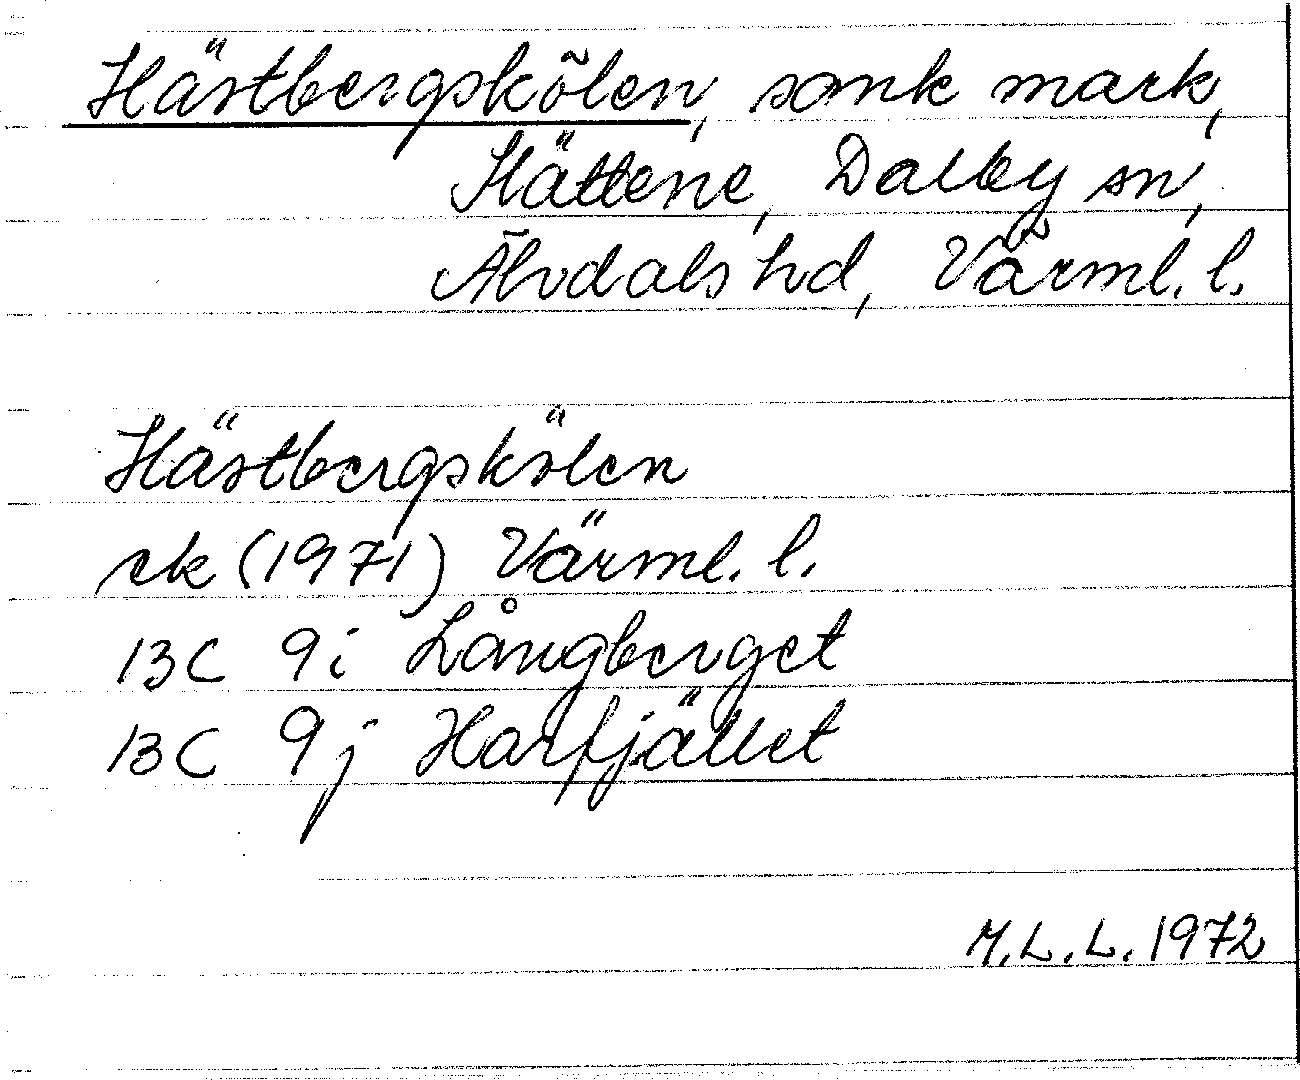 Hästbergskölen, sank mark,
Hättene, Dalby sn,
Älvdals hd, Värml. l.
Hästbergskölen
ek (1971) Värml. l.
13C 9i Långberget
13C 9j Harfjället
M.L.L. 1972